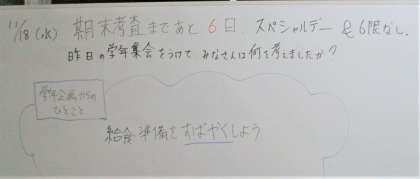 11/18(水) 期末考査まであと6日. スペシャルデー&6限なし.
昨日の学年集会をうけて みなさんは何を考えましたか?
学年企画からの
ひとこと
給食準備をすばやくしよう